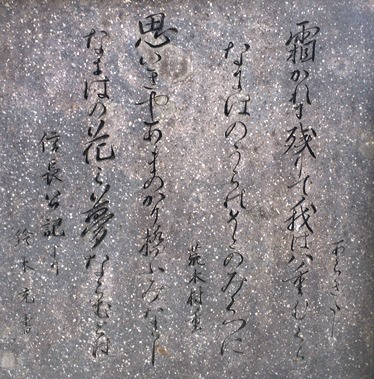 あらきたし
霜かれに残りて我は八重むくら
なにはのうらのそこのみくつに
荒木村重
思いきやあまのかけ橋ふみならし
なにはの花も夢ならむとは
信長公記より
鈴木 書